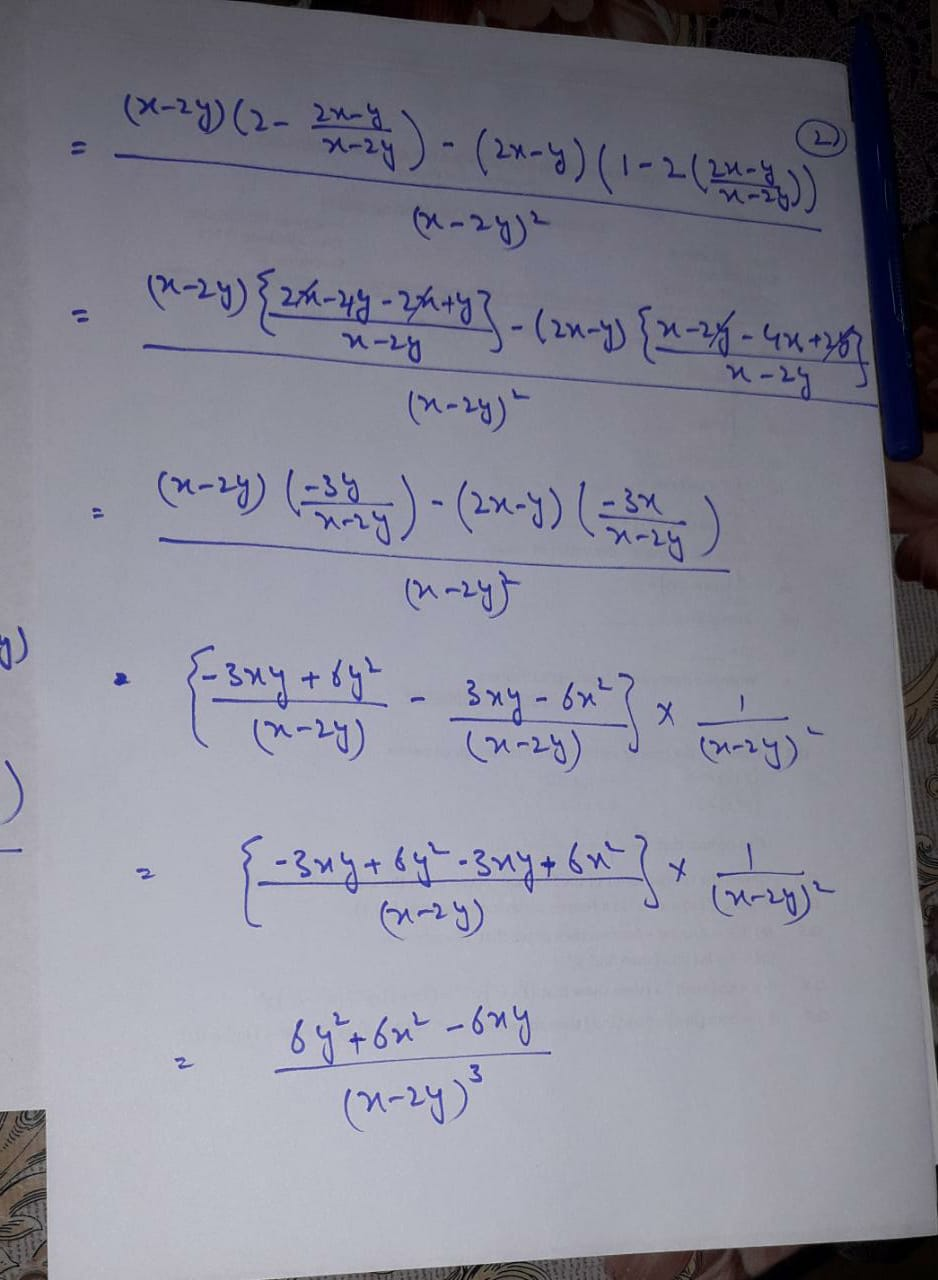 ②
= (x-2y)(2- (2x-y)/(x-2y)) - (2x-y)(1-2((2x-y)/(x-2y)))
(x-2y)²
= (x-2y){(2x-4y-2x+y)/(x-2y)} - (2x-y){(x-2y-4x+2y)/(x-2y)}
(x-2y)²
= (x-2y)(-3y/(x-2y)) - (2x-y)(-3x/(x-2y))
(x-2y)²
y)
= {(-3xy+6y²)/(x-2y) - (3xy-6x²)/(x-2y)} × 1/(x-2y)²
)
= {(-3xy+6y²-3xy+6x²)/(x-2y)} × 1/(x-2y)²
= 6y²+6x²-6xy
(x-2y)³